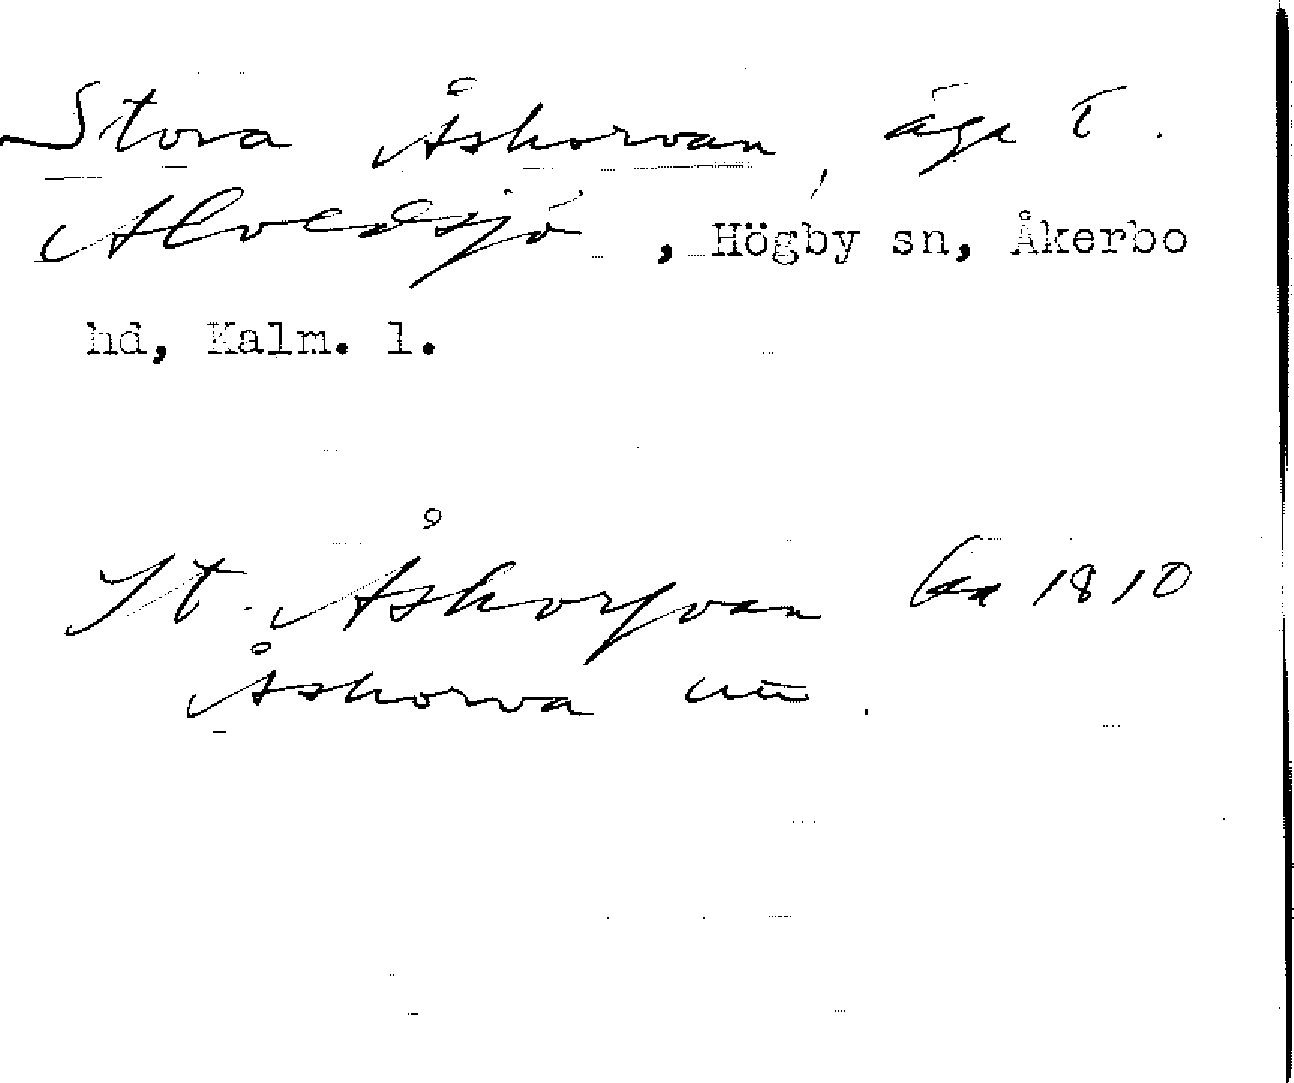 Stora Åskorvan, äga t.
Alvedsjö, Högby sn, Åkerbo
hd, Kalm. l.
St. Åskorfvan ka 1810
Åskorva uä